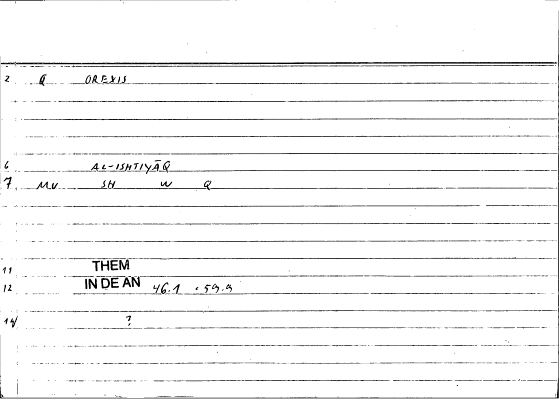 2 Q OREXIS
6 AL-ISHTIYĀQ
7 MV SH W Q
11 THEM
12 IN DE AN 46.1 · 59.9
14/ ?